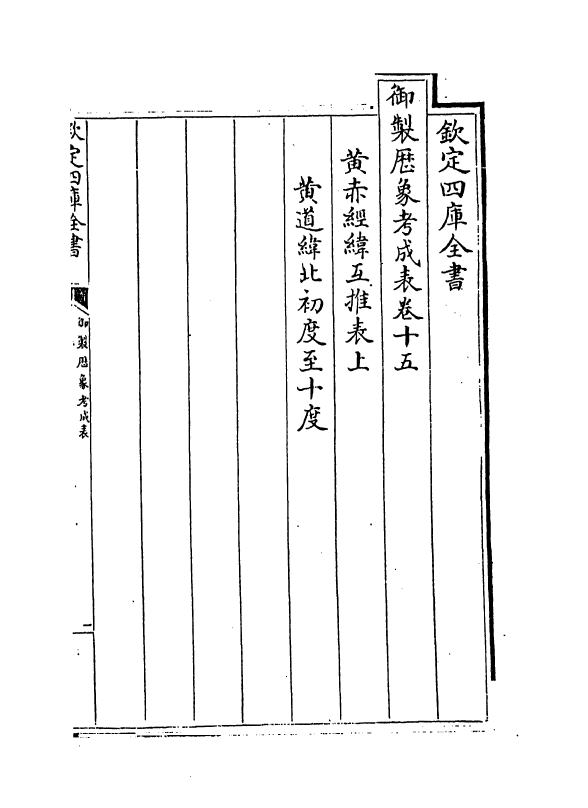 欽定四庫全書
御製厯象考成表卷十五
黄赤經緯互推表上
黄道緯北初度至十度
欽定四庫全書
御製厯象考成表